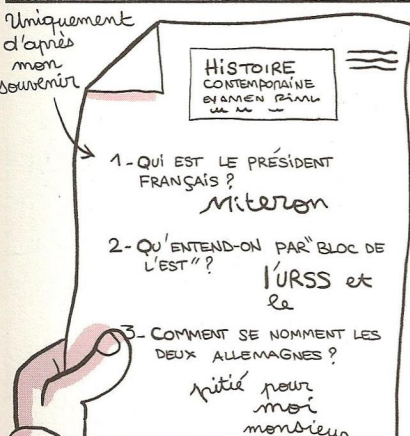 Uniquement
d'après
mon
souvenir
HISTOIRE
CONTEMPORAINE
EXAMEN FINAL
1-QUI EST LE PRÉSIDENT
FRANÇAIS ?
Miteron
2-QU'ENTEND-ON PAR "BLOC DE
L'EST" ?
l'URSS et
le
3-COMMENT SE NOMMENT LES
DEUX ALLEMAGNES ?
pitié pour
moi
monsieur